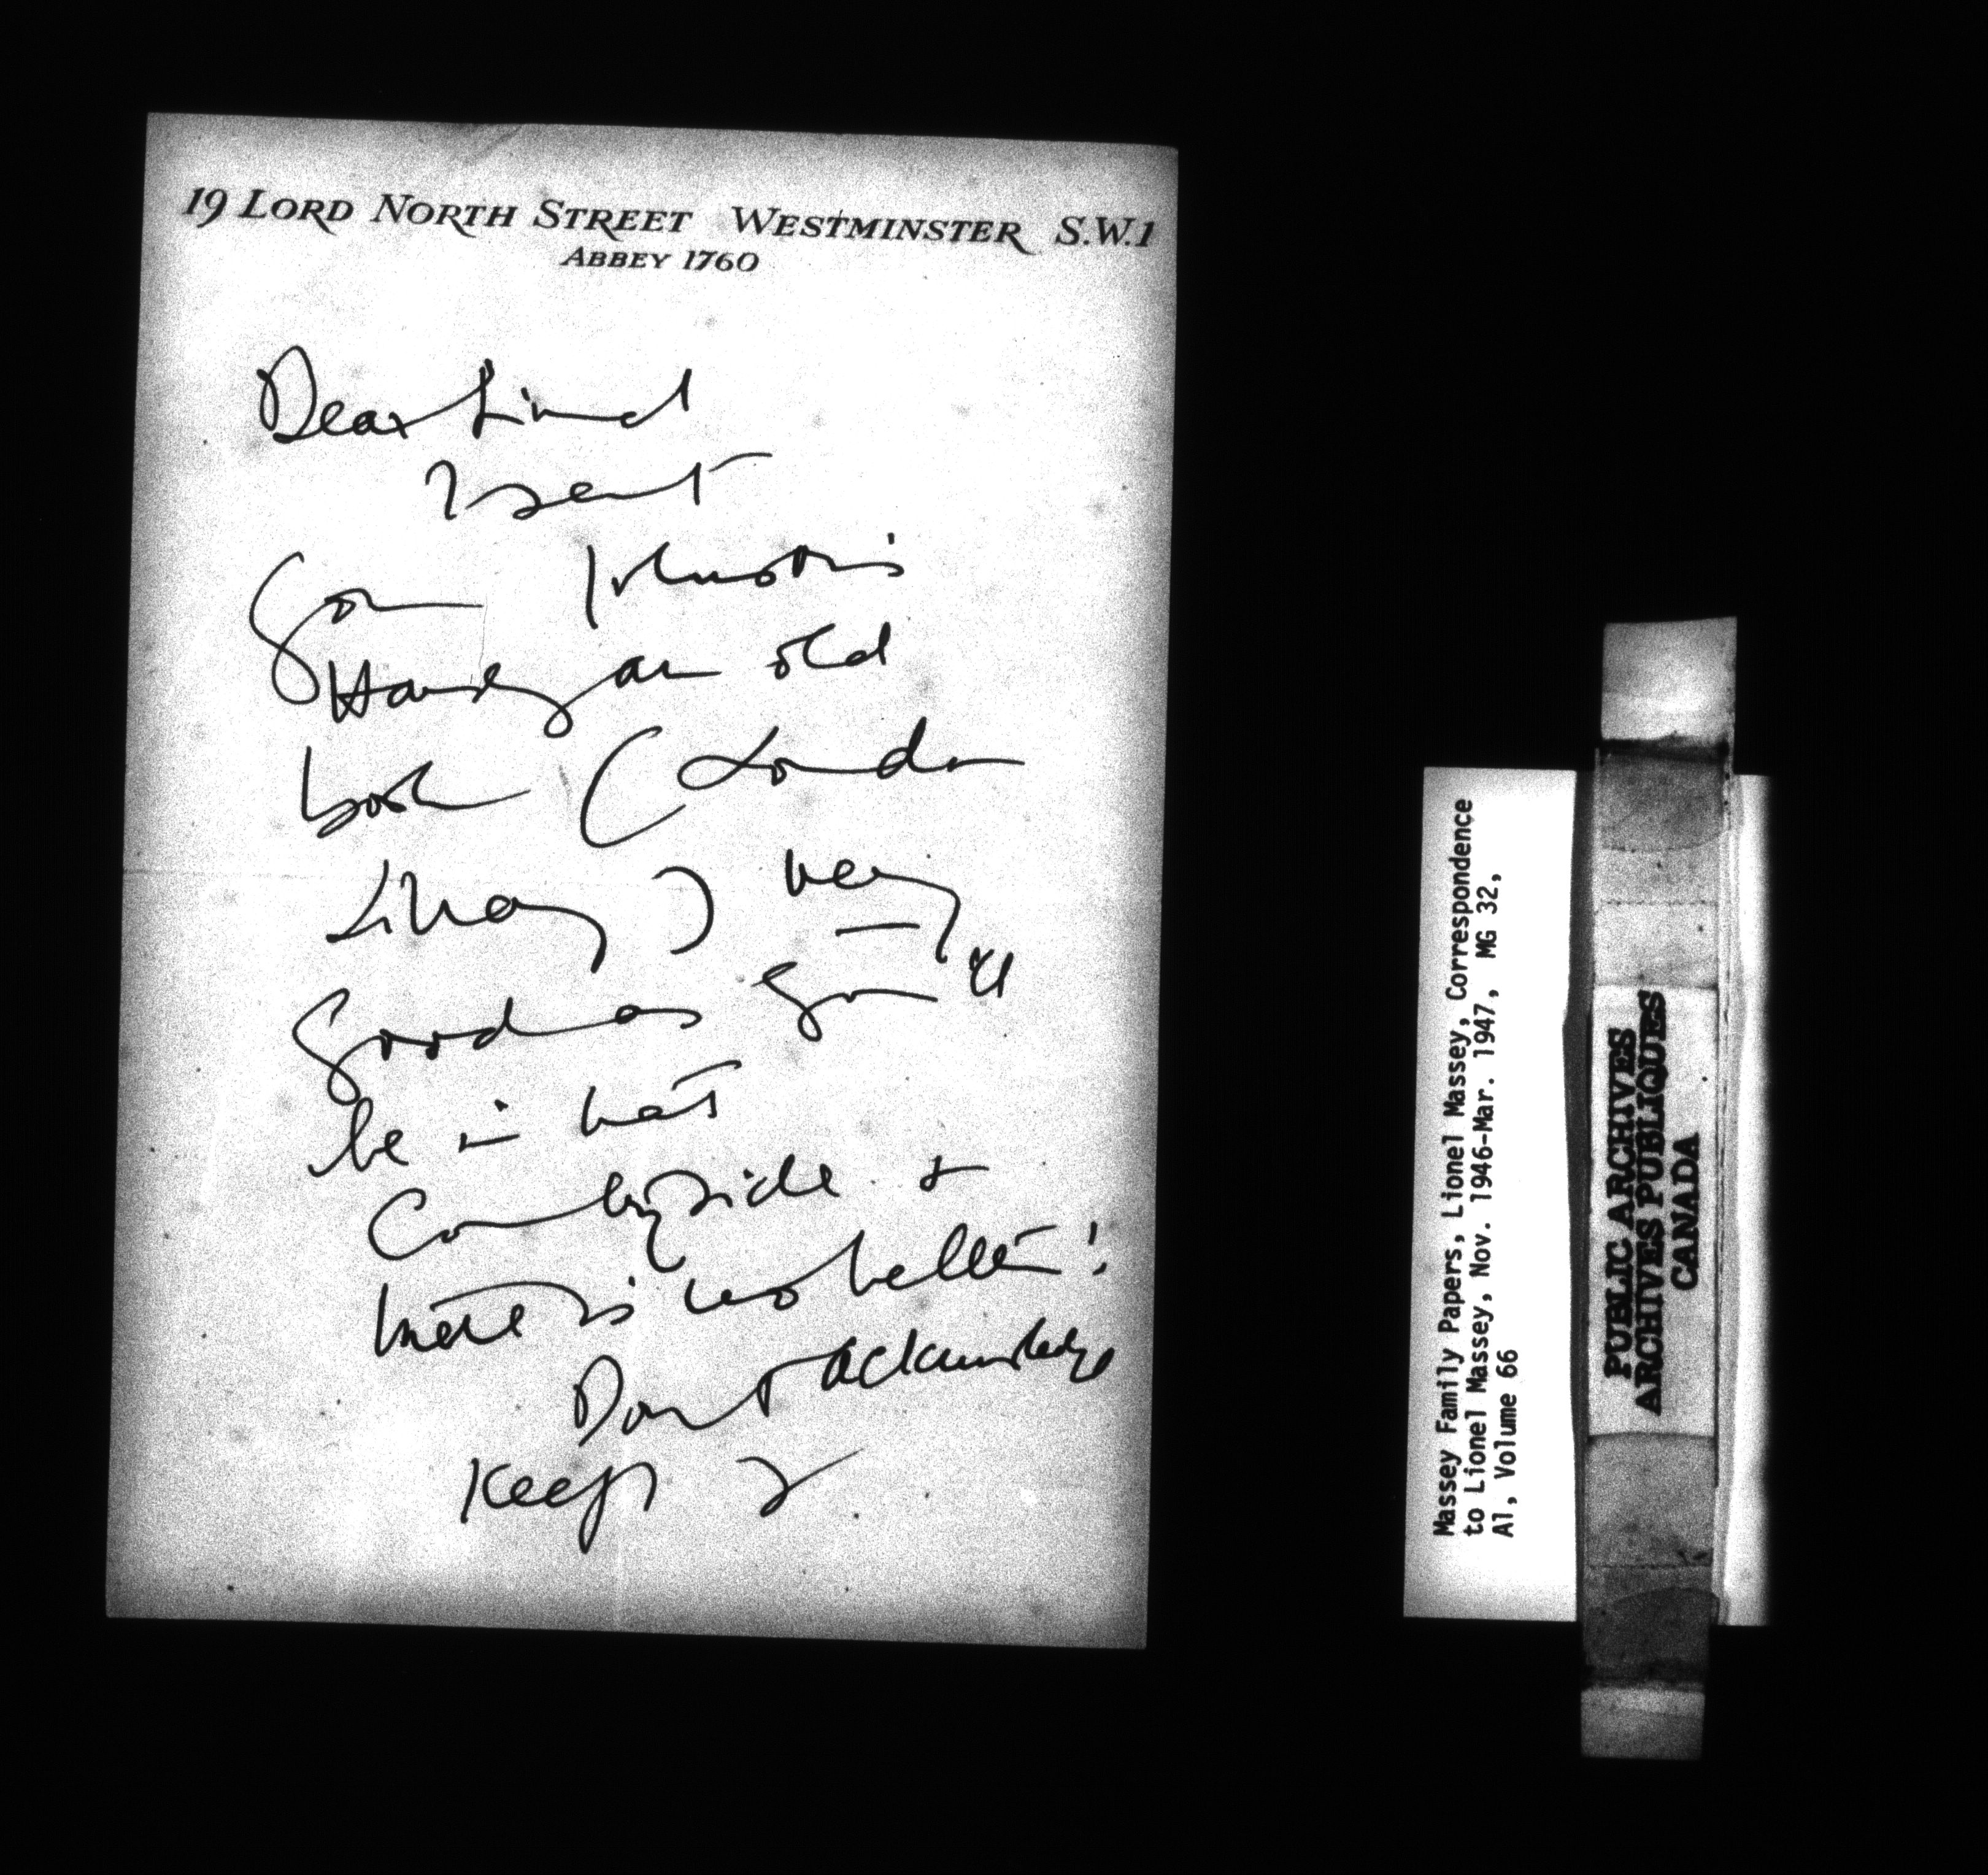 19 LORD NORTH STREET WESTMINSTER S.W.1
ABBEY 1760
Dear Lionel
I sent
you Johnston's
Handy an old
book (London
Library) very
good as you'll
be in that
Countryside &
there is no better!
Don't acknowledge
Keep
Massey Family Papers, Lionel Massey, Correspondence
to Lionel Massey, Nov. 1946-Mar. 1947, MG 32,
A1, Volume 66
PUBLIC ARCHIVES
ARCHIVES PUBLIQUES
CANADA